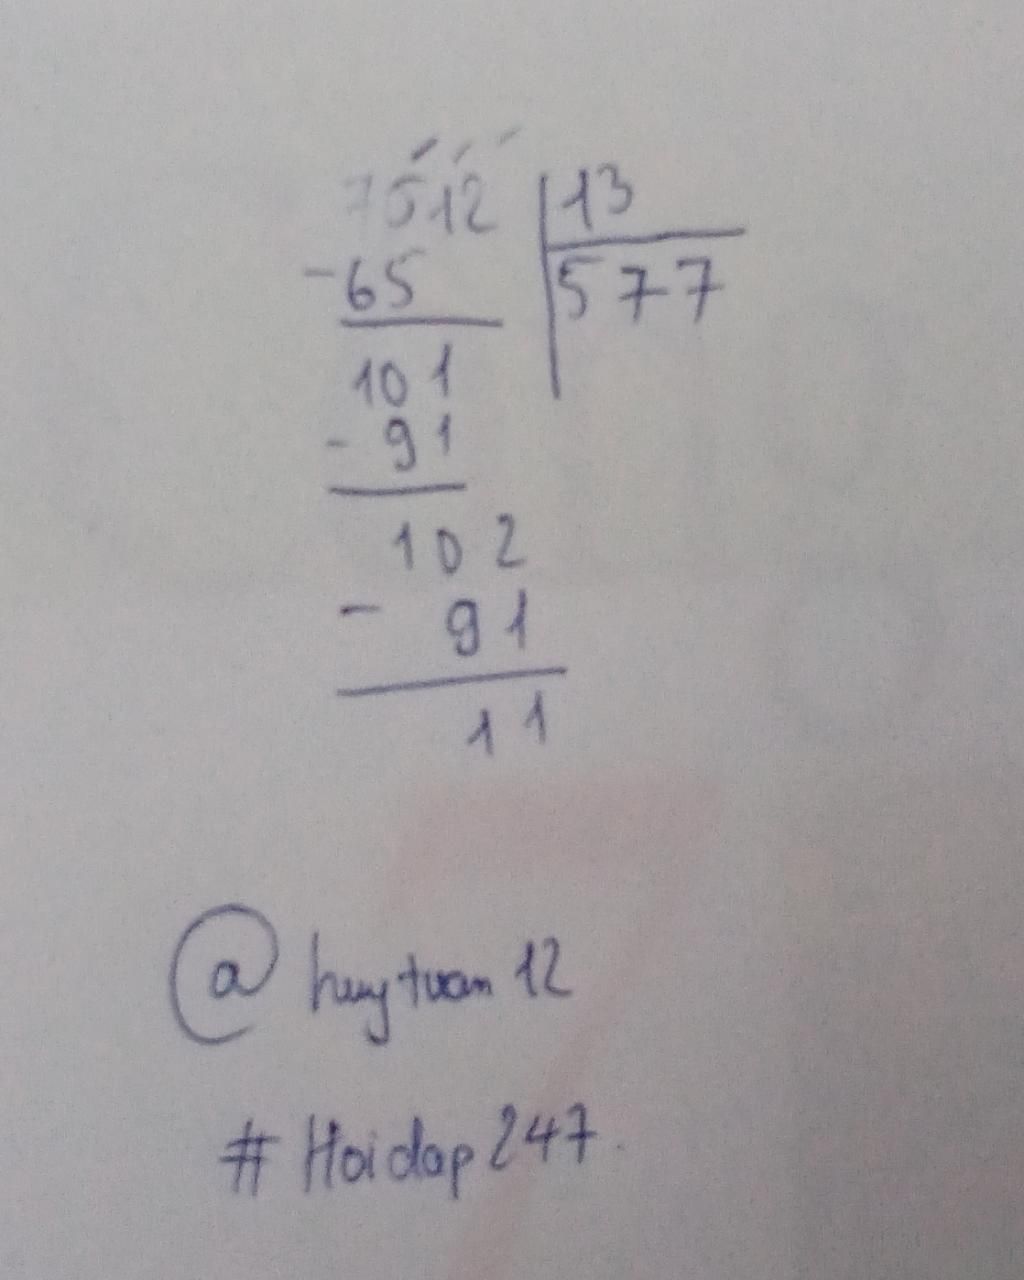 7512 13
-65 577
101
- 91
102
- 91
11
@ huytuan 12
# Hoidap 247.